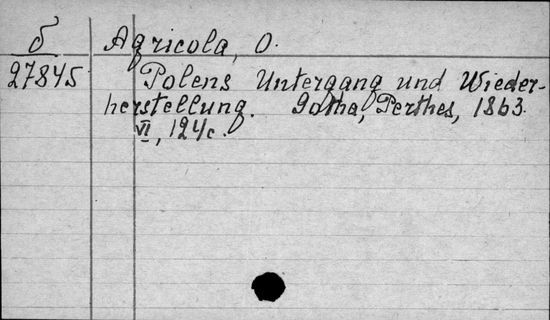 б Agricola, O.
27845 Polens Untergang und Wieder-
herstellung. Gotha, Perthes, 1863.
VI, 124 c.